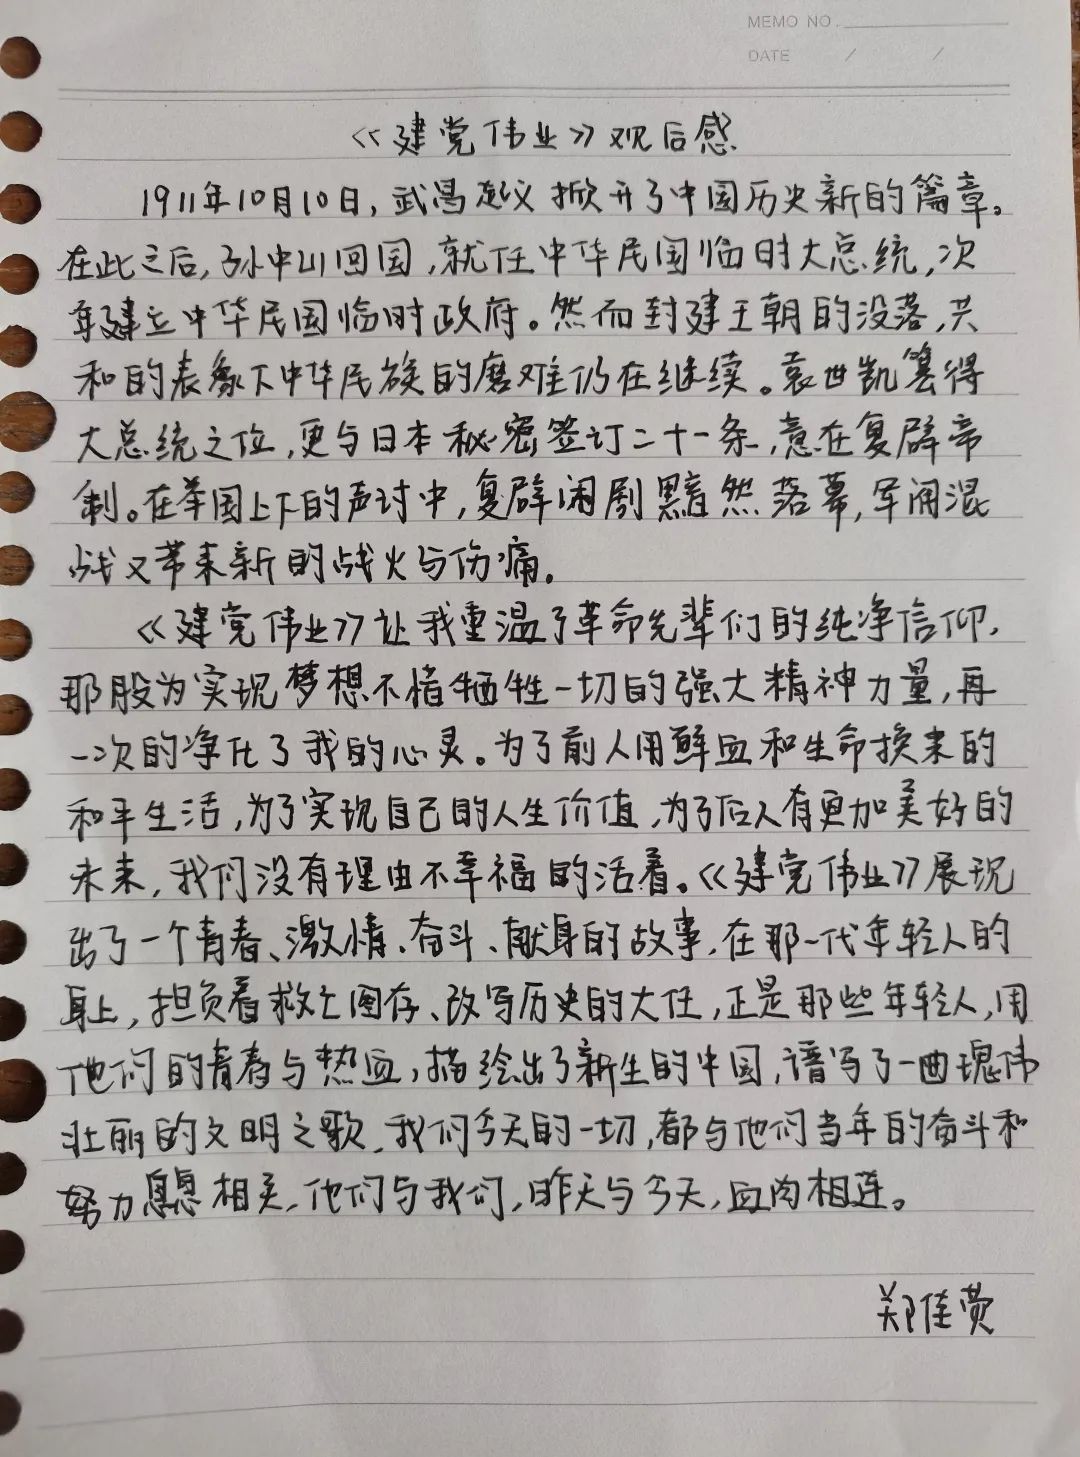 MEMO NO.
DATE / /
《建党伟业》观后感
1911年10月10日,武昌起义掀开了中国历史新的篇章。
在此之后,孙中山回国,就任中华民国临时大总统,次
年建立中华民国临时政府。然而封建王朝的没落,共
和的表象下中华民族的磨难仍在继续。袁世凯篡得
大总统之位,更与日本秘密签订二十一条,意在复辟帝
制。在举国上下的声讨中,复辟闹剧黯然落幕,军阀混
战又带来新的战火与伤痛。
《建党伟业》让我重温了革命先辈们的纯净信仰,
那股为实现梦想不惜牺牲一切的强大精神力量,再
一次的净化了我的心灵。为了前人用鲜血和生命换来的
和平生活,为了实现自己的人生价值,为了后人有更加美好的
未来,我们没有理由不幸福的活着。《建党伟业》展现
出了一个青春、激情、奋斗、献身的故事,在那一代年轻人的
身上,担负着救亡图存、改写历史的大任,正是那些年轻人,用
他们的青春与热血,描绘出了新生的中国,谱写了一曲瑰伟
壮丽的文明之歌,我们今天的一切,都与他们当年的奋斗和
努力息息相关,他们与我们,昨天与今天,血肉相连。
郑佳